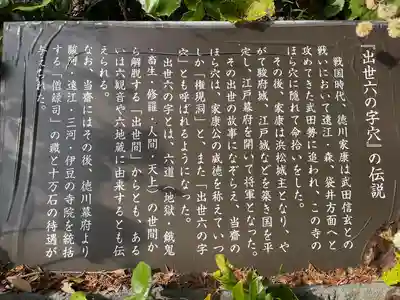 『出世六の字穴』の伝説
戦国時代、徳川家康は武田信玄との
戦いにおいて遠江・森、袋井方面へと
攻めてきた武田勢に追われ、この寺の
ほら穴に隠れて命拾いをした。
その後、家康は浜松城主となり、や
がて駿府城、江戸城などを築き国を平
定し、江戸幕府を開いて将軍となった。
その出世の故事になぞらえ、当斎の
ほら穴は、家康公の威徳を称えていつ
しか「権現洞」と、また「出世六の字
穴」とも呼ばれるようになった。
出世六の字とは、六道（地獄・餓鬼
・畜生・修羅・人間・天上）の世間か
ら解脱する「出世間」からとも、ある
いは六観音や六地蔵に由来するとも伝
えられる。
なお、当斎にはその後、徳川幕府より
駿河・遠江・三河・伊豆の寺院を統括
する「僧録司」の職と十万石の待遇が
与えられた。